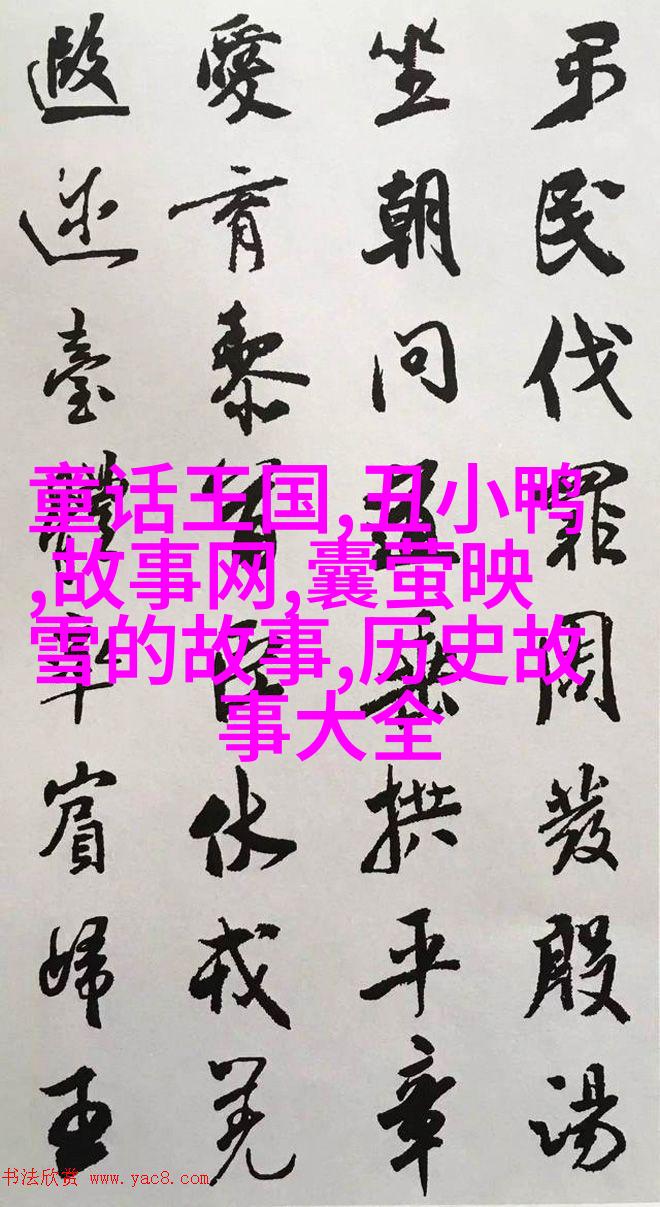 弔民伐罪周發殷湯
坐朝問道垂拱平章
愛育黎首臣伏戎羌
遐迩臺體率賓歸王
童话王国,丑小鸭
,故事网,囊萤映
雪的故事,历史故
事大全
书法欣赏 www.yac8.com